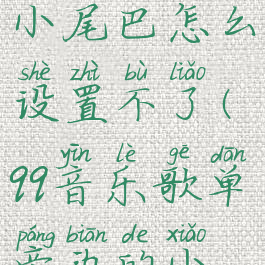 小尾巴怎么
shè zhì bù liǎo
设置不了(
yīn lè gē dān
99音乐歌单
páng biān de xiǎo
旁边的小